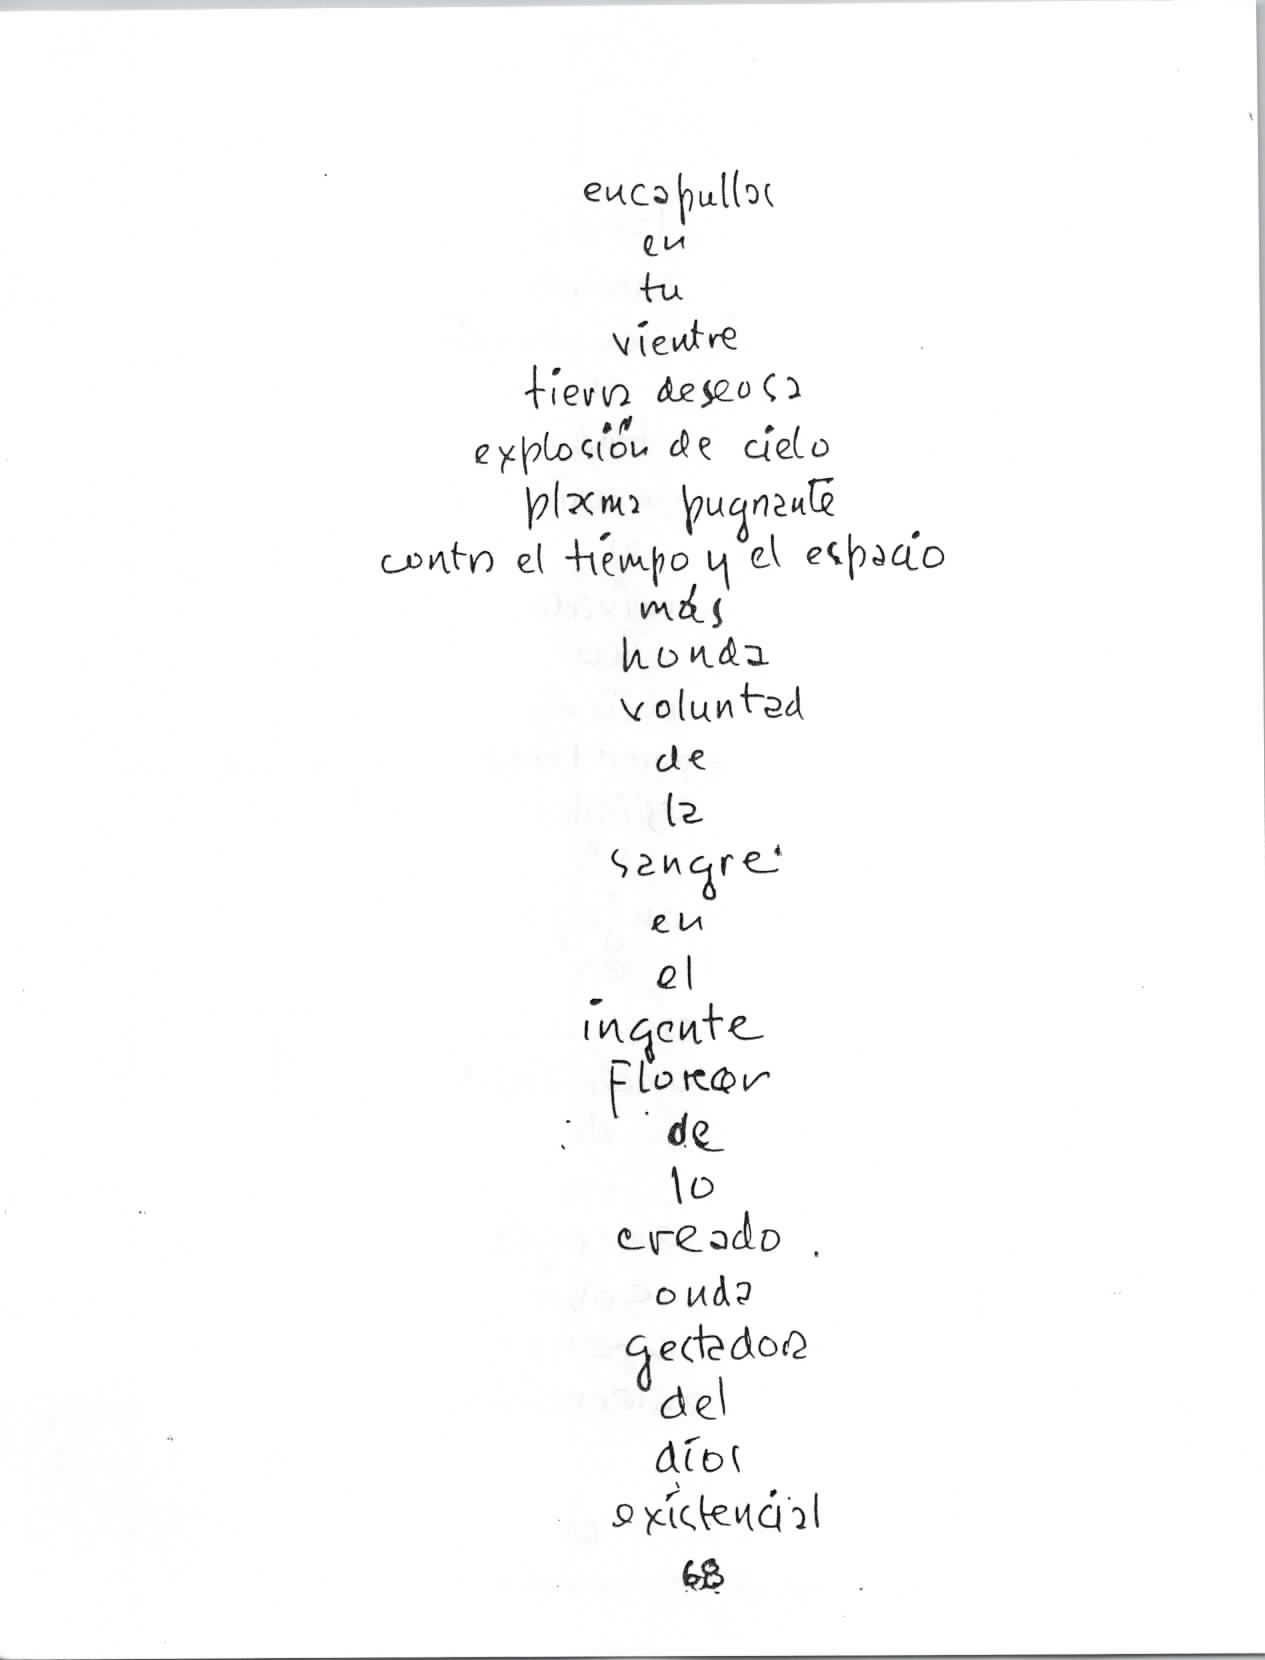 encapullas
en
tu
vientre
tierra deseosa
explosión de cielo
plasma pugnante
contra el tiempo y el espacio
más
honda
voluntad
de
la
sangre
en
el
ingente
florecer
de
lo
creado
onda
gestadora
del
dios
existencial
68